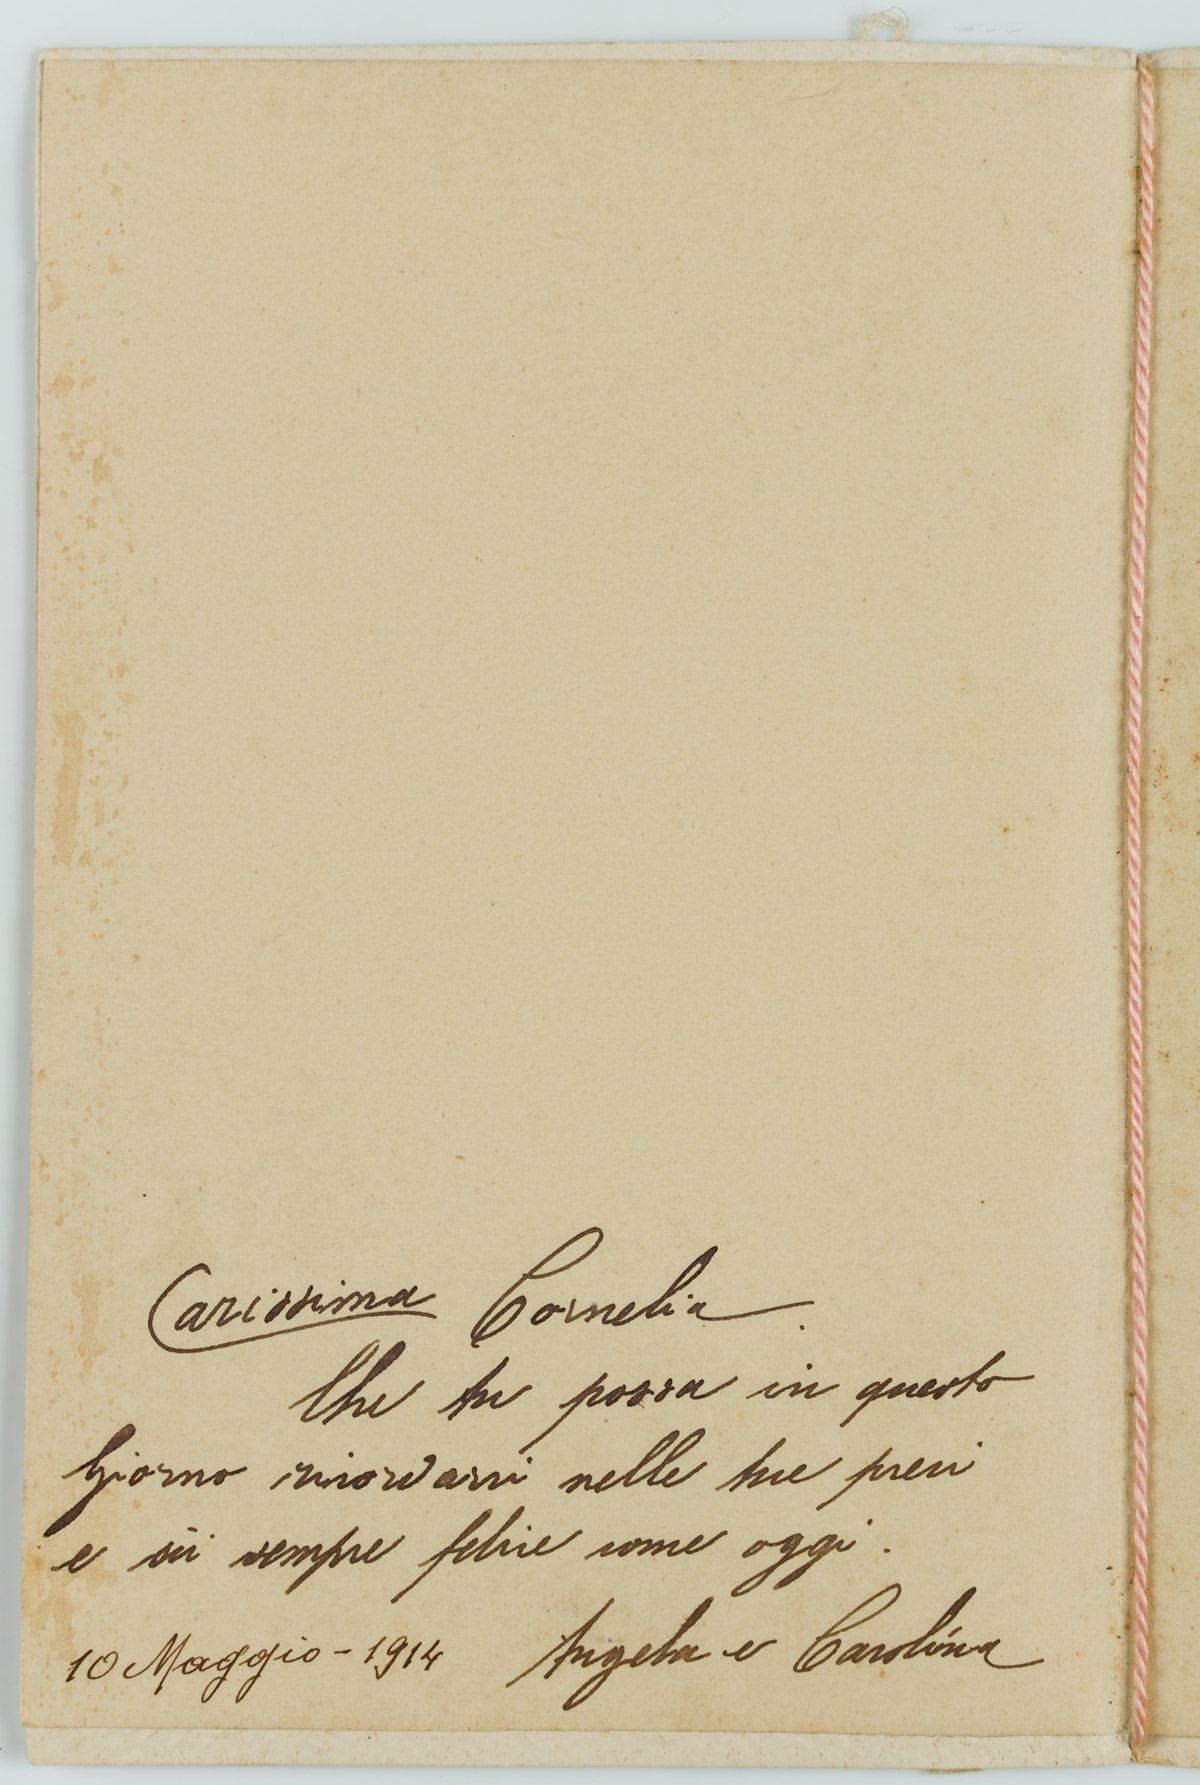 Carissima Cornelia.
Che tu possa in questo
Giorno ricordarci nelle tue preci
e sii sempre felice come oggi.
10 Maggio - 1914 Angela e Carolina